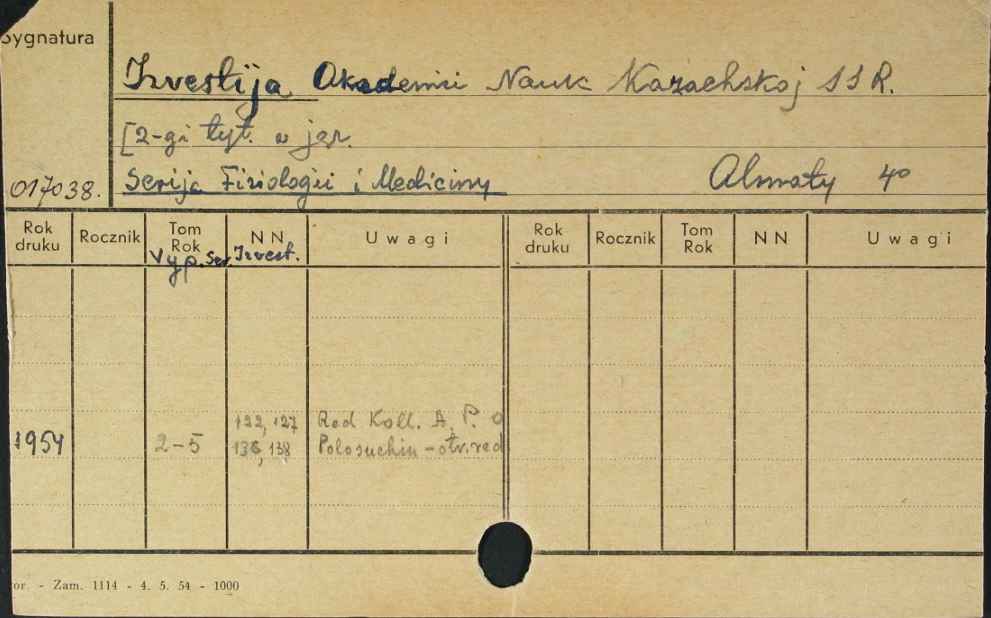 Sygnatura
Izvestija Akademii Nauk Kazachskoj SSR.
[2-gi tyt. w jęz.
017038. Serija Fiziologii i Mediciny Almaty 4°
Rok druku Rocznik Tom Rok NN Uwagi Rok druku Rocznik Tom Rok NN Uwagi
Vyp. Ser. Izvest.
122, 127 Red Koll. A. P. o
1954 2-5 136, 138 Polosuchin - otv. red
or. - Zam. 1114 - 4. 5. 54 - 1000